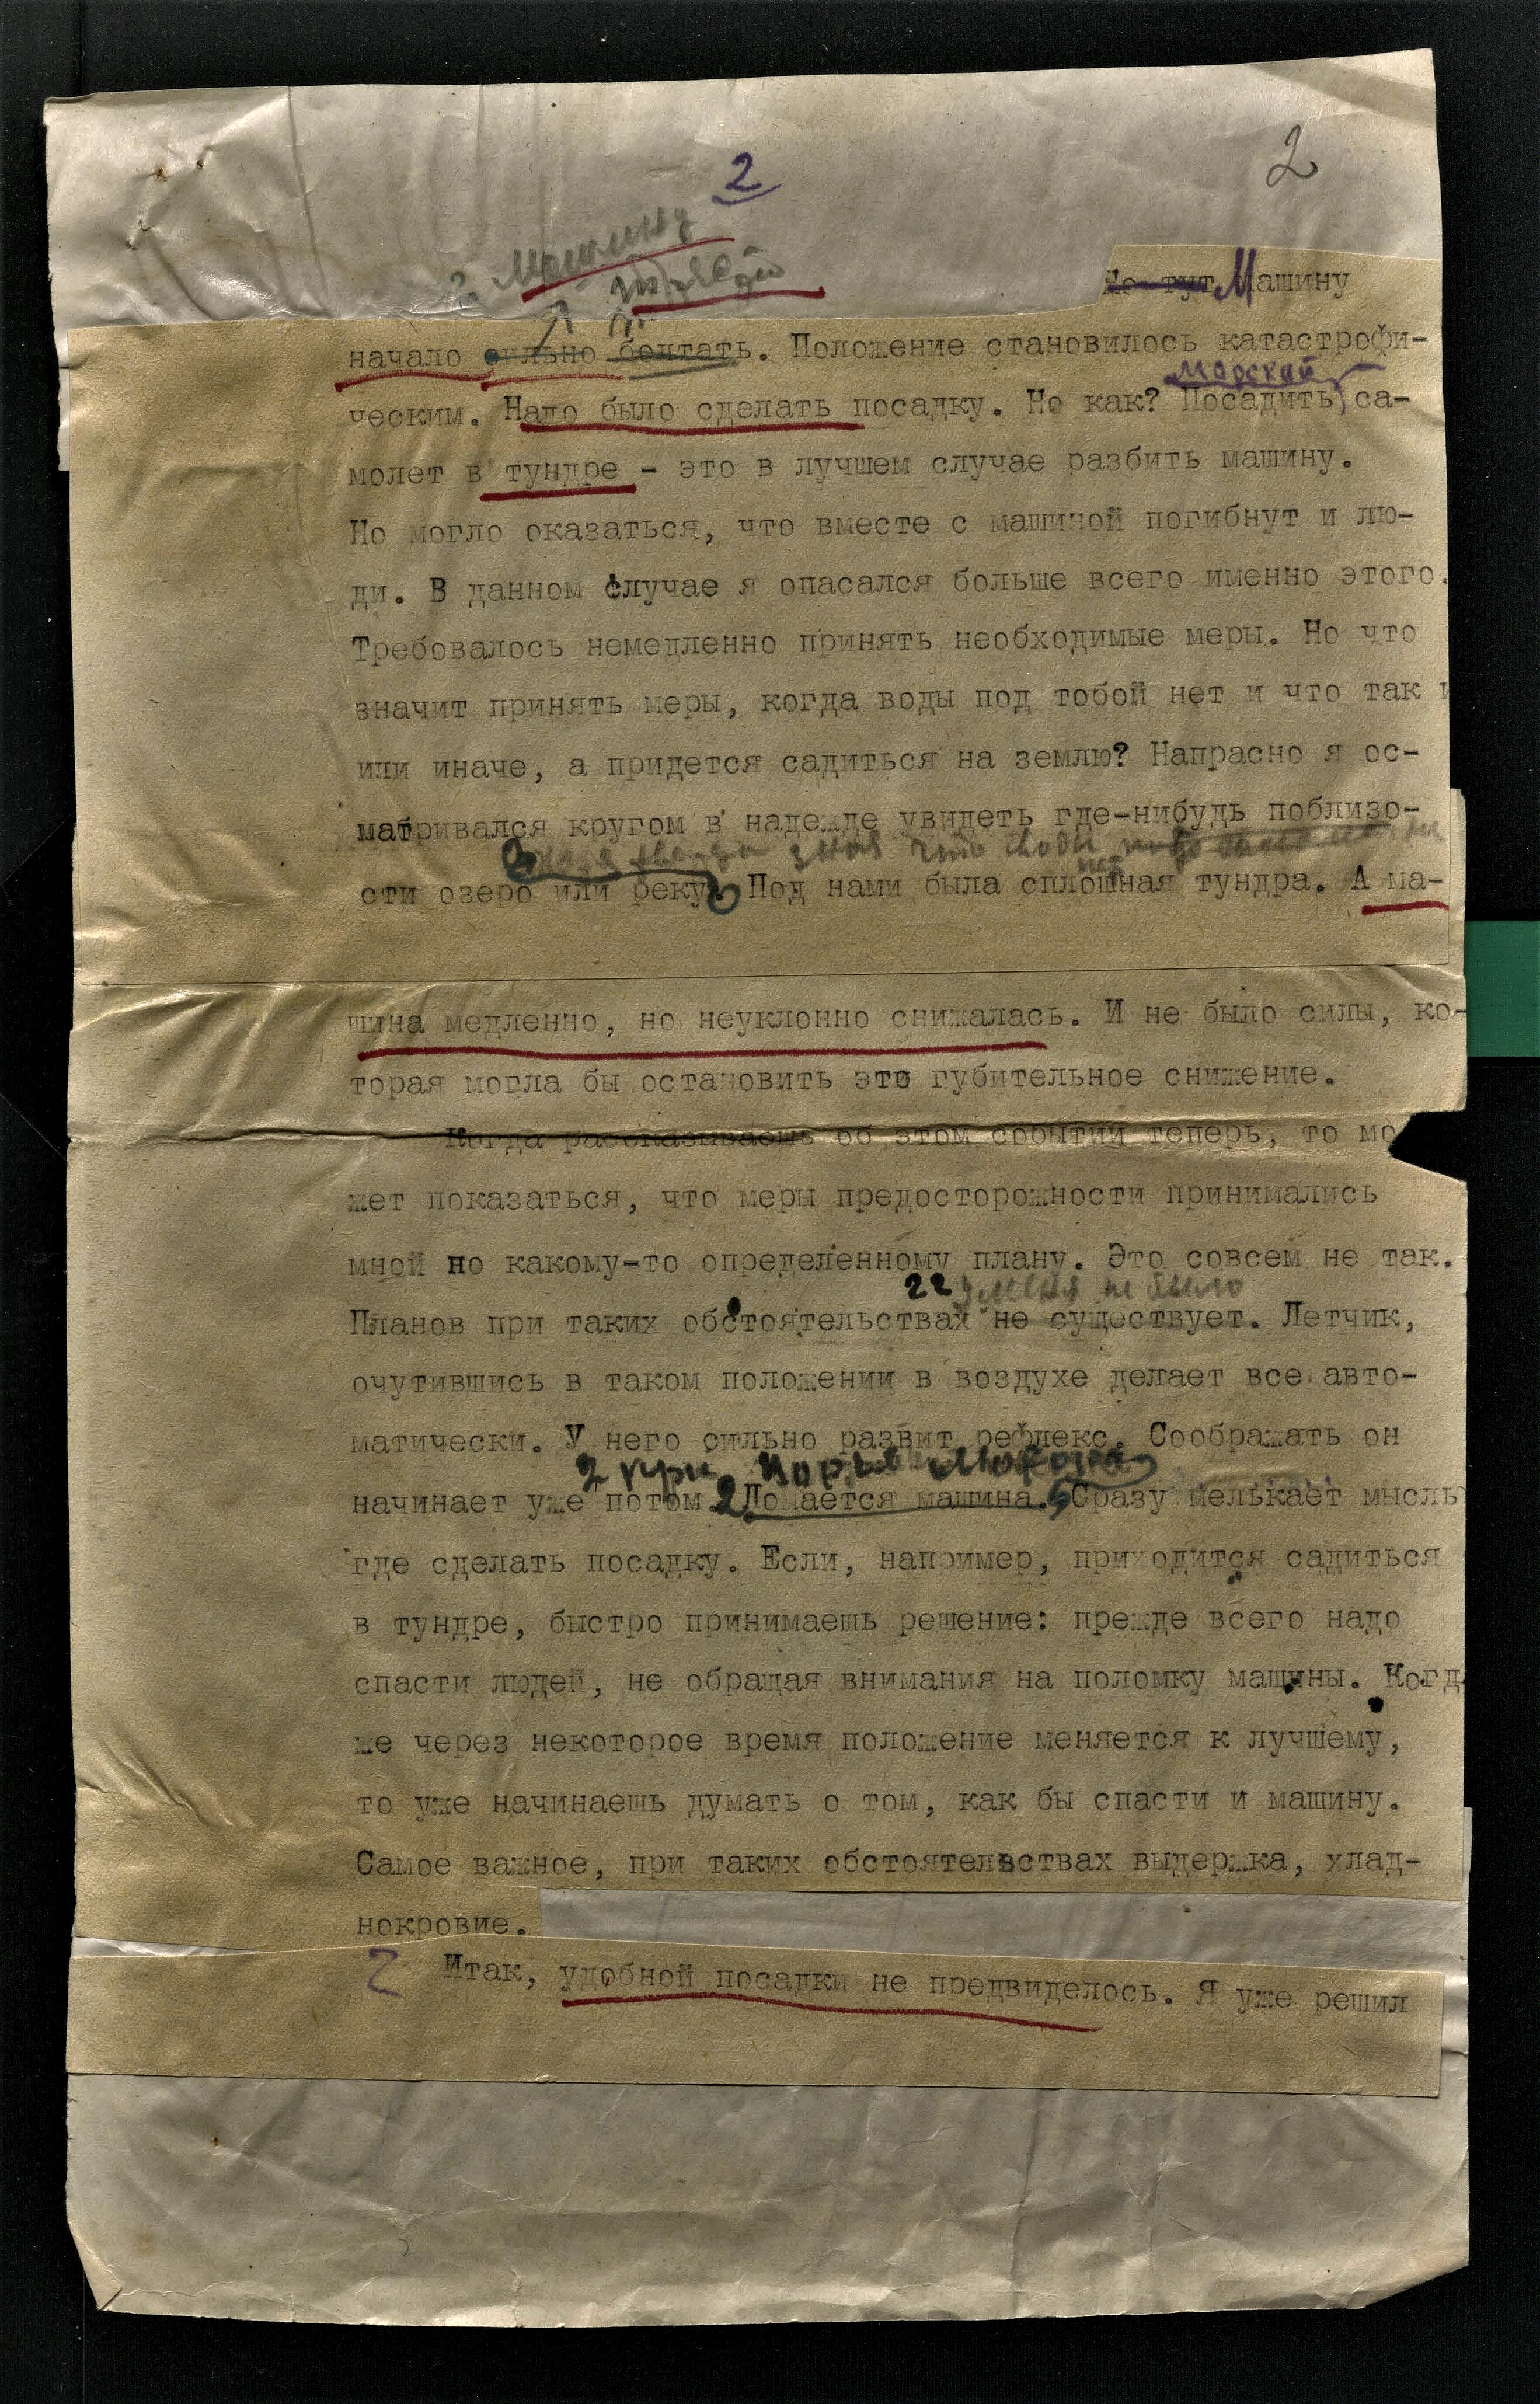 2
2
Машину
Но тут Машину
начало сильно болтать. Положение становилось катастрофи-
морской
ческим. Надо было сделать посадку. Но как? Посадить са-
молет в тундре - это в лучшем случае разбить машину.
Но могло оказаться, что вместе с машиной погибнут и лю-
ди. В данном случае я опасался больше всего именно этого.
Требовалось немедленно принять необходимые меры. Но что
значит принять меры, когда воды под тобой нет и что так и
или иначе, а придется садиться на землю? Напрасно я ос-
матривался кругом в надежде увидеть где-нибудь поблизо-
зная что воды
нет
сти озеро или реку. Под нами была сплошная тундра. А ма-
шина медленно, но неуклонно снижалась. И не было силы, ко-
торая могла бы остановить это губительное снижение.
Когда рассказываешь об этом событии теперь, то мо
жет показаться, что меры предосторожности принимались
мной по какому-то определенному плану. Это совсем не так.
у меня не было
Планов при таких обстоятельствах не существует. Летчик,
очутившись в таком положении в воздухе делает все авто-
матически. У него сильно развит рефлекс. Соображать он
при порче мотора
начинает уже потом. Ломается машина. Сразу мелькает мысль
где сделать посадку. Если, например, приходится садиться
в тундре, быстро принимаешь решение: прежде всего надо
спасти людей, не обращая внимания на поломку машины. Когд
же через некоторое время положение меняется к лучшему,
то уже начинаешь думать о том, как бы спасти и машину.
Самое важное, при таких обстоятельствах выдержка, хлад-
нокровие.
Итак, удобной посадки не предвиделось. Я уже решил